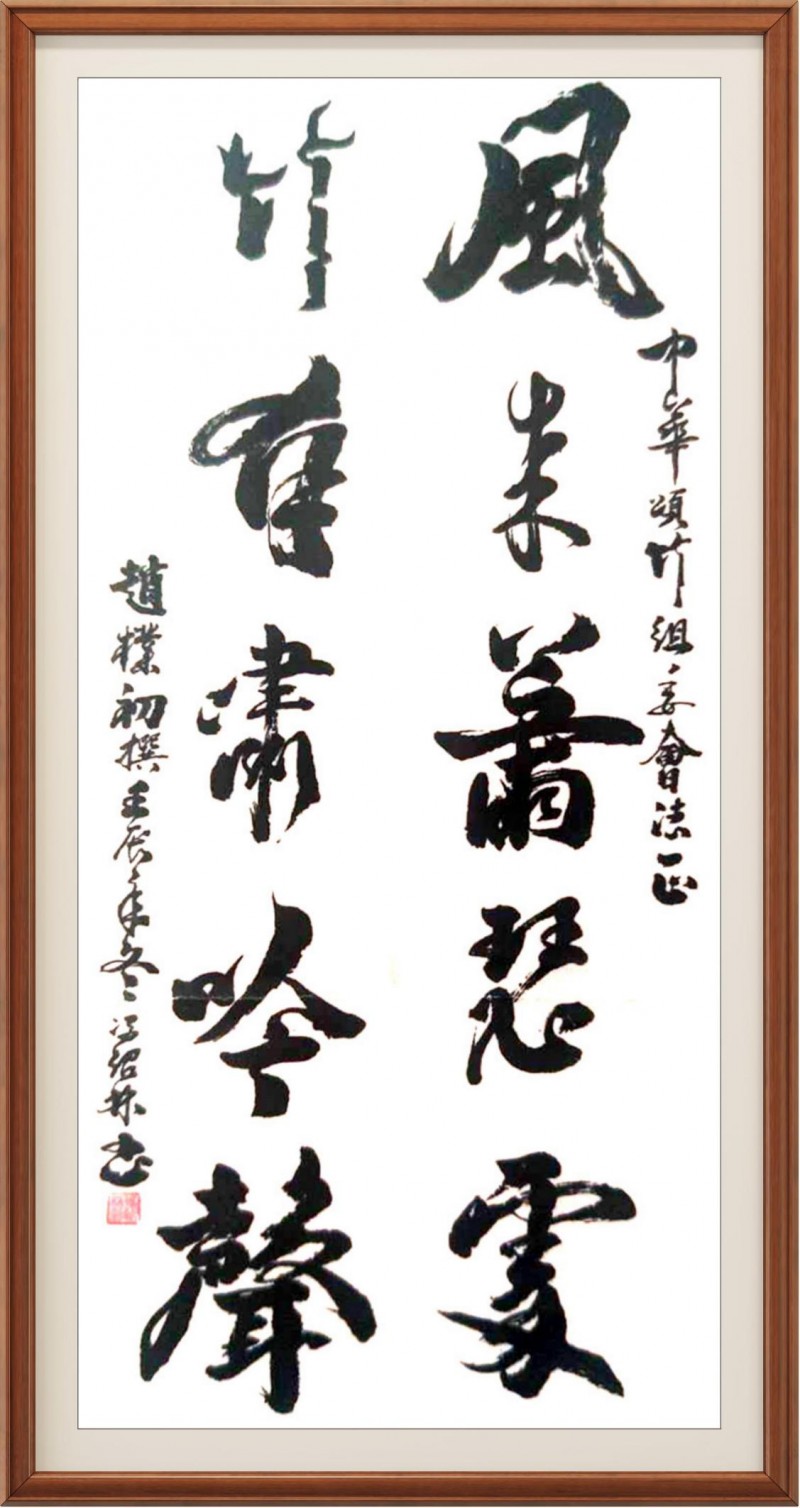 中華頌竹組委會法正
風来蕭瑟處
竹有嘯吟聲
趙樸初撰壬辰年冬馮紹林書